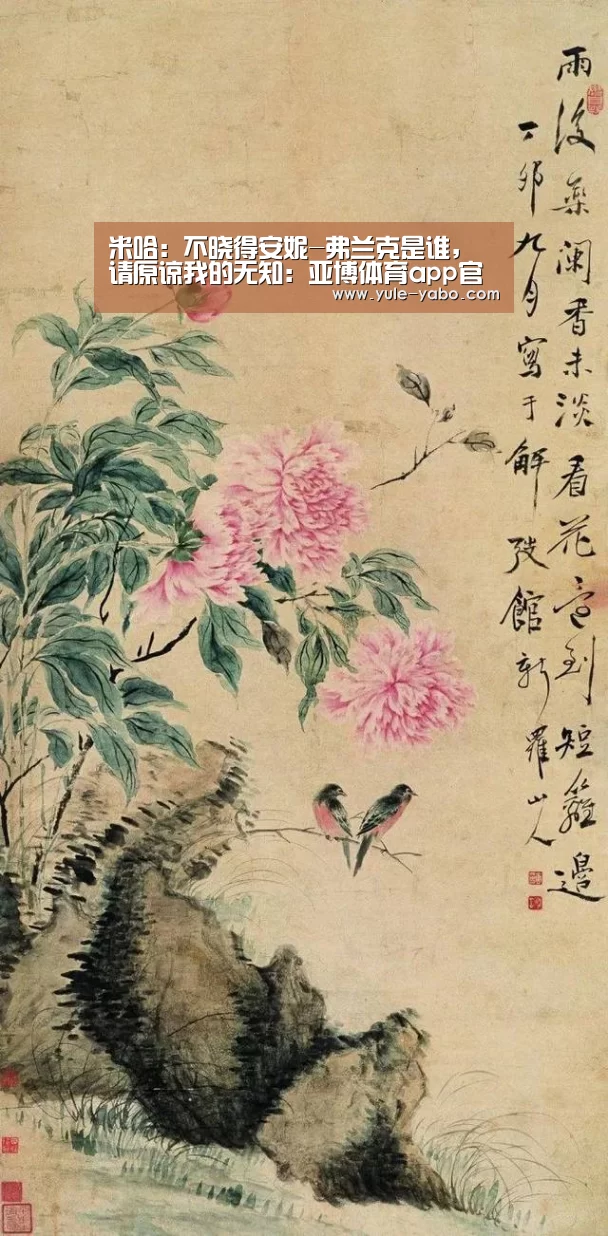 米哈：不晓得安妮-弗兰克是谁，
请原谅我的无知：亚博体育app官
www.yule-yabo.com
雨後藥闌香未淡看花到短籬邊
丁卯九月寫于解弢館新羅山人